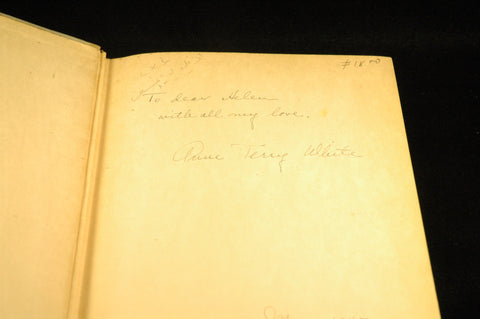 $18.00
To dear Helen
with all my love.
Anne Terry White